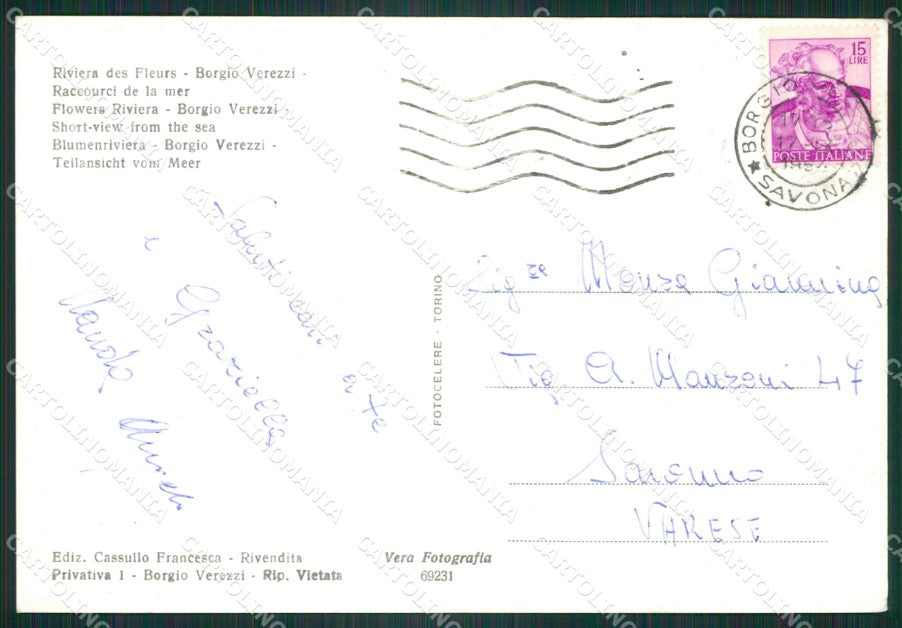 Riviera des Fleurs - Borgio Verezzi -
Raccourci de la mer
Flowers Riviera - Borgio Verezzi -
Short-view from the sea
Blumenriviera - Borgio Verezzi -
Teilansicht vom Meer
15
LIRE
POSTE ITALIANE
BORGIO
SAVONA
Saluti cari a te
e Graziella
Nando
FOTOCELERE - TORINO
Sig.ra Monza Giannina
Via A. Manzoni 47
Saronno
VARESE
Ediz. Cassullo Francesca - Rivendita
Privativa 1 - Borgio Verezzi - Rip. Vietata
Vera Fotografia
69231
CARTOLINOMANIA